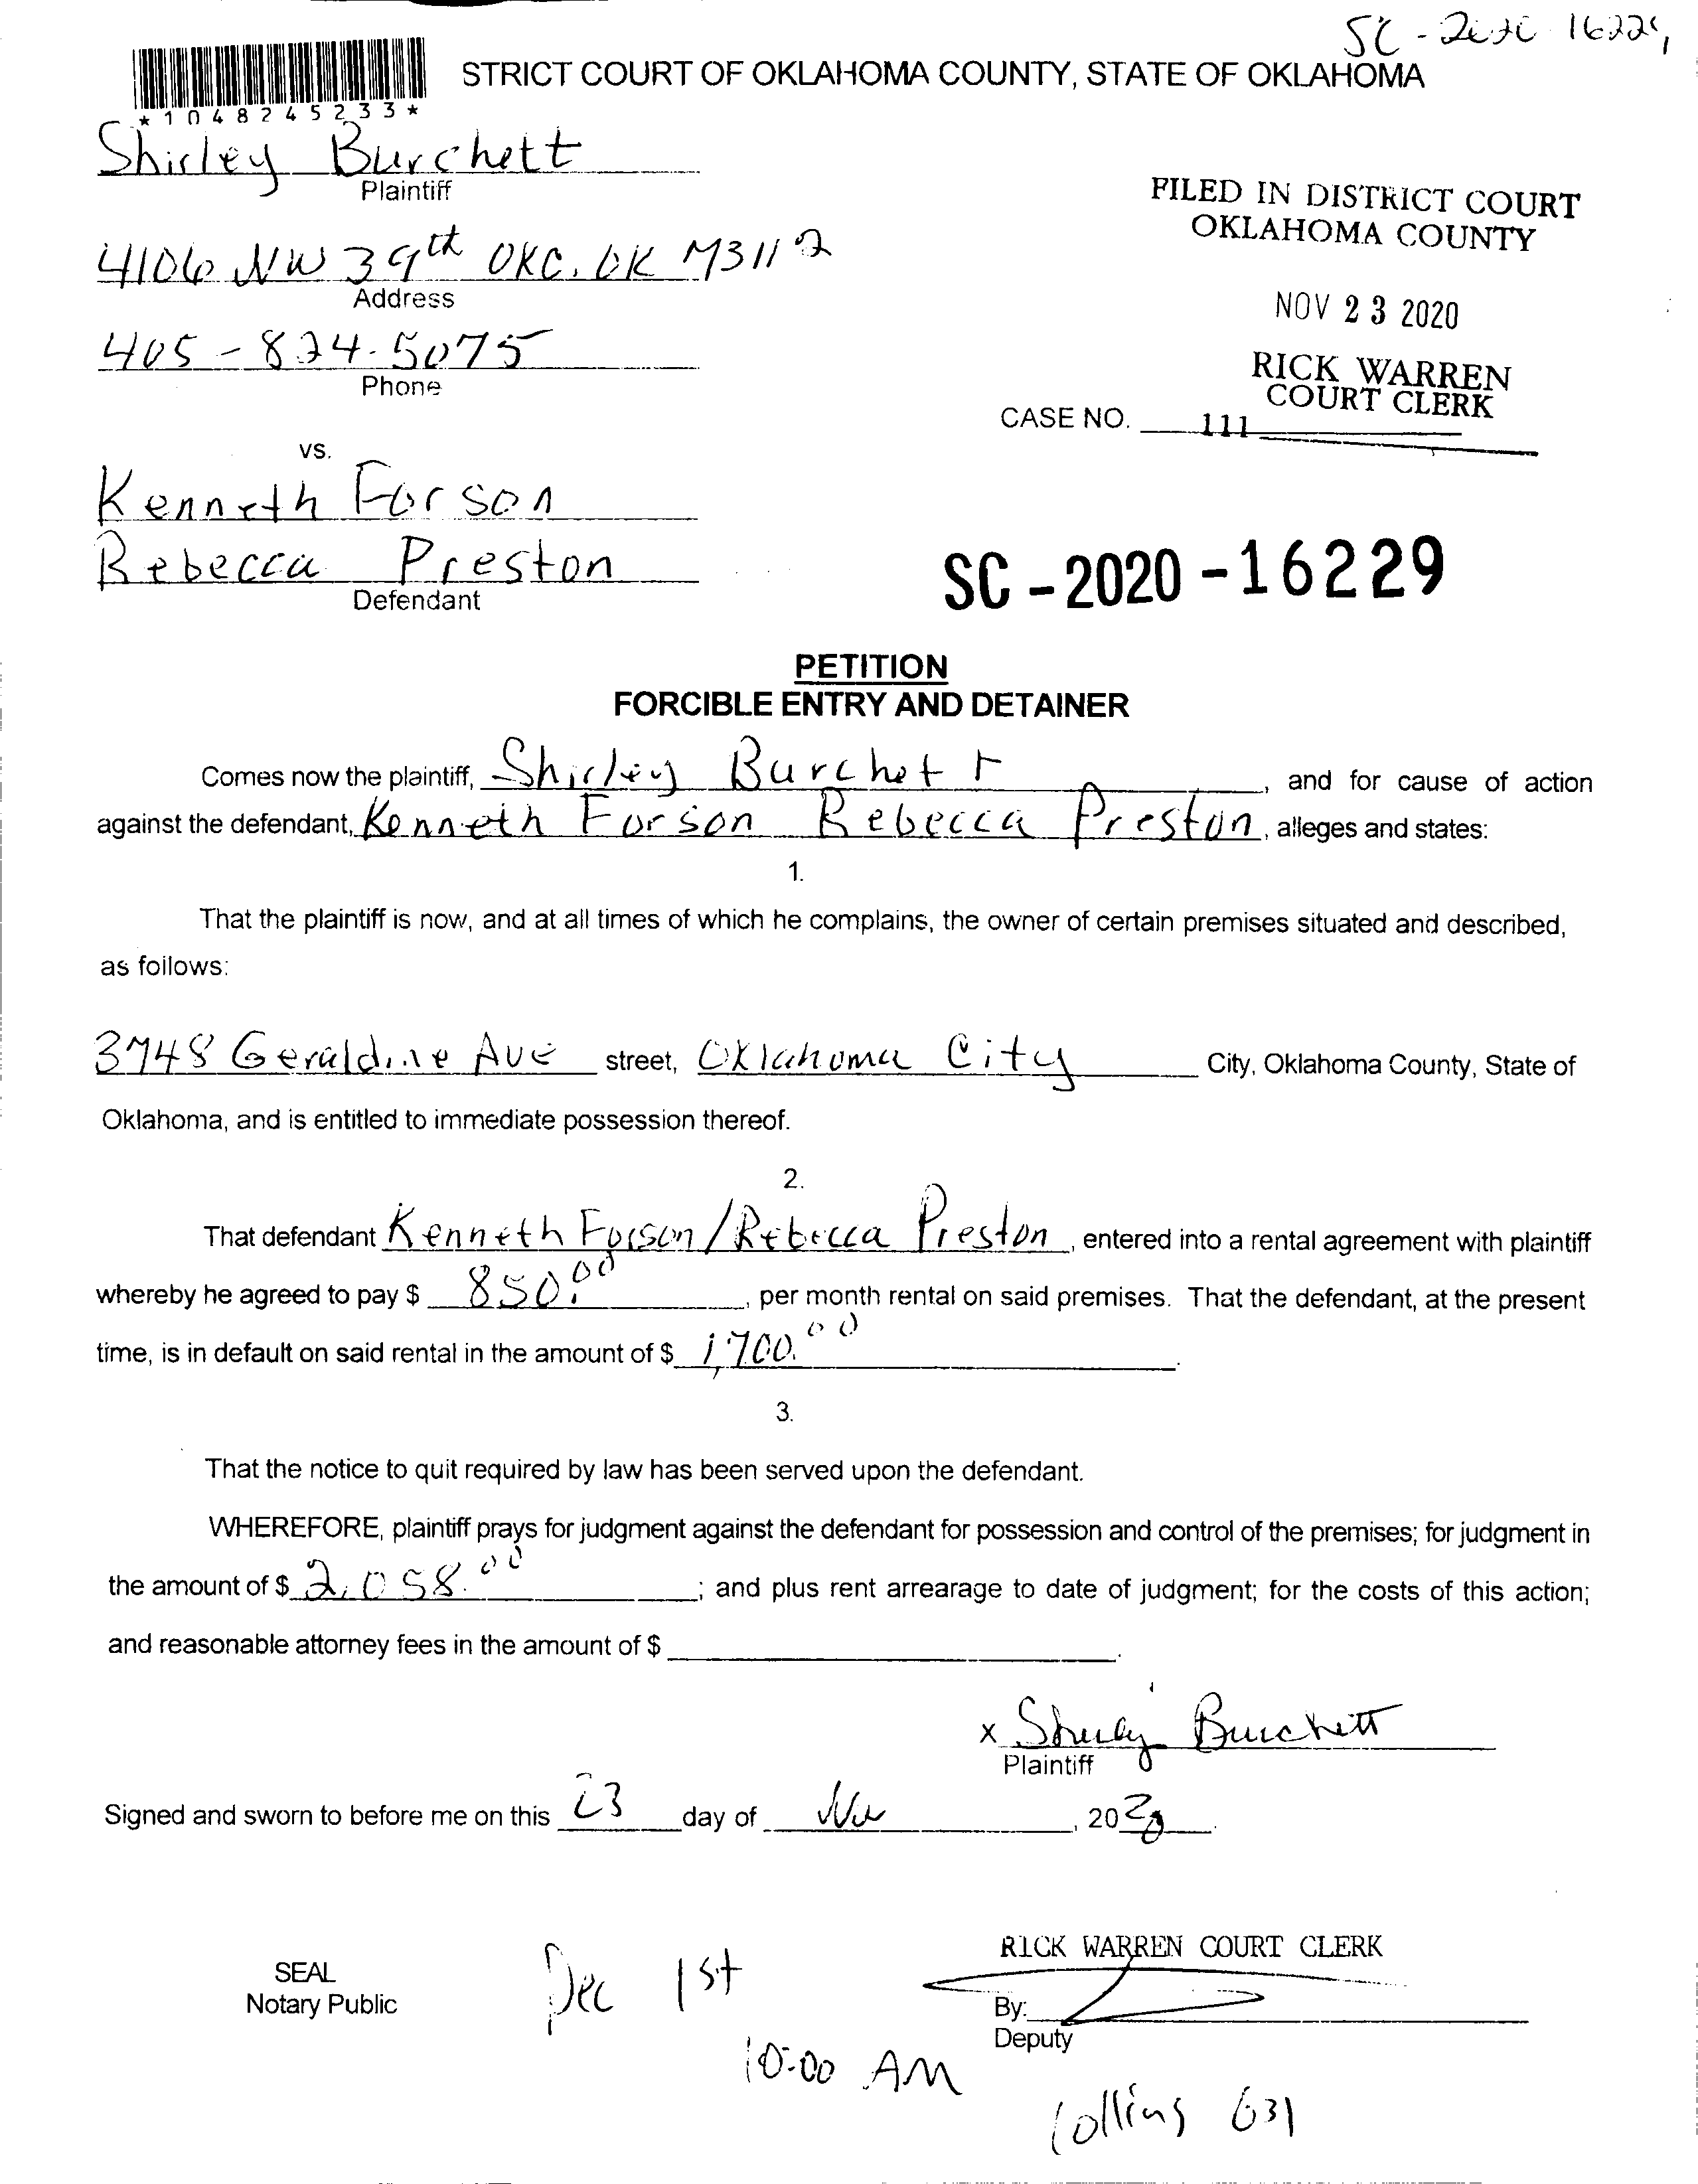 SC-2020-16229
STRICT COURT OF OKLAHOMA COUNTY, STATE OF OKLAHOMA
*1048245233*
Shirley Burchett
Plaintiff
FILED IN DISTRICT COURT
OKLAHOMA COUNTY
4106 NW 39th OKC. OK 73112
Address
NOV 23 2020
405-824-5075
Phone
RICK WARREN
COURT CLERK
CASE NO. 111
vs.
Kenneth Forson
Rebecca Preston
Defendant
SC-2020-16229
PETITION
FORCIBLE ENTRY AND DETAINER
Comes now the plaintiff, Shirley Burchett, and for cause of action
against the defendant, Kenneth Forson Rebecca Preston, alleges and states:
1.
That the plaintiff is now, and at all times of which he complains, the owner of certain premises situated and described,
as follows:
3748 Geraldine Ave street, Oklahoma City City, Oklahoma County, State of
Oklahoma, and is entitled to immediate possession thereof.
2.
That defendant Kenneth Forson/Rebecca Preston, entered into a rental agreement with plaintiff
whereby he agreed to pay $ 850.00, per month rental on said premises. That the defendant, at the present
time, is in default on said rental in the amount of $ 1,700.00.
3.
That the notice to quit required by law has been served upon the defendant.
WHEREFORE, plaintiff prays for judgment against the defendant for possession and control of the premises; for judgment in
the amount of $ 2,058.00; and plus rent arrearage to date of judgment; for the costs of this action;
and reasonable attorney fees in the amount of $
x Shirley Burchett
Plaintiff
Signed and sworn to before me on this 23 day of Nov, 2020.
RICK WARREN COURT CLERK
SEAL
Notary Public
Dec 1st
By:
Deputy
10:00 AM
Collins 631